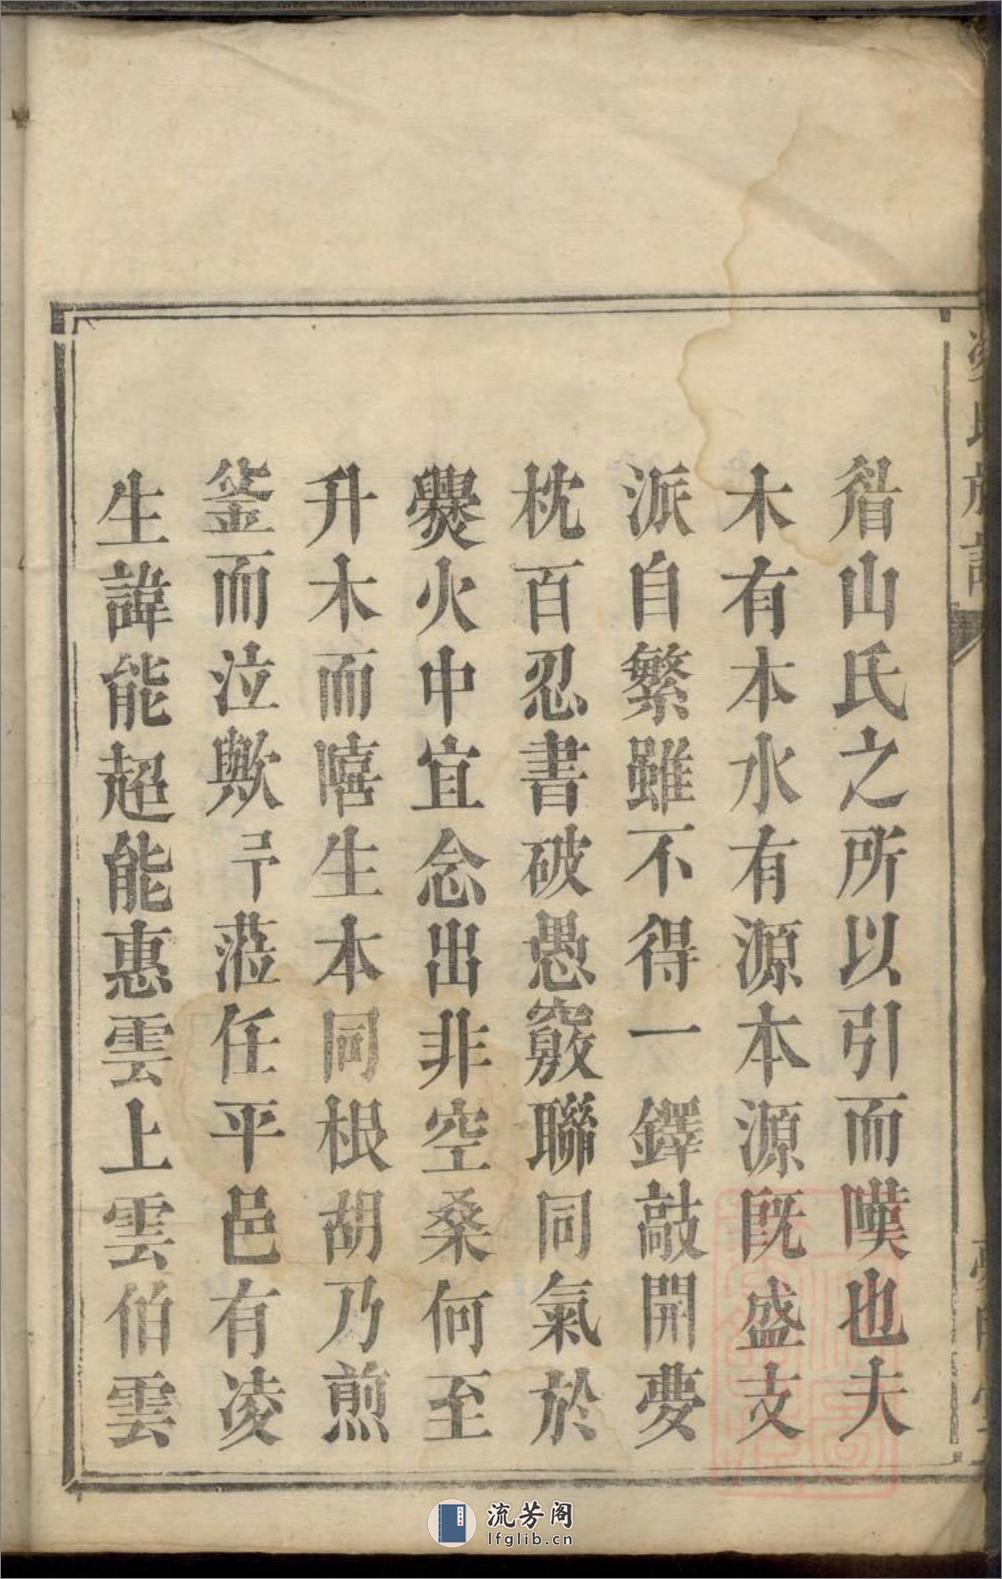 眉山氏之所以引而嘆也夫
木有本水有源本源既盛支
派自繁雖不得一鐸敲開夢
枕百忍書破愚竅聯同氣於
爨火中宜念出非空桑何至
升木而嘻生本同根胡乃煎
釜而泣歟予蒞任平邑有凌
生諱能超能惠雲上雲伯雲
流芳阁
lfglib.cn